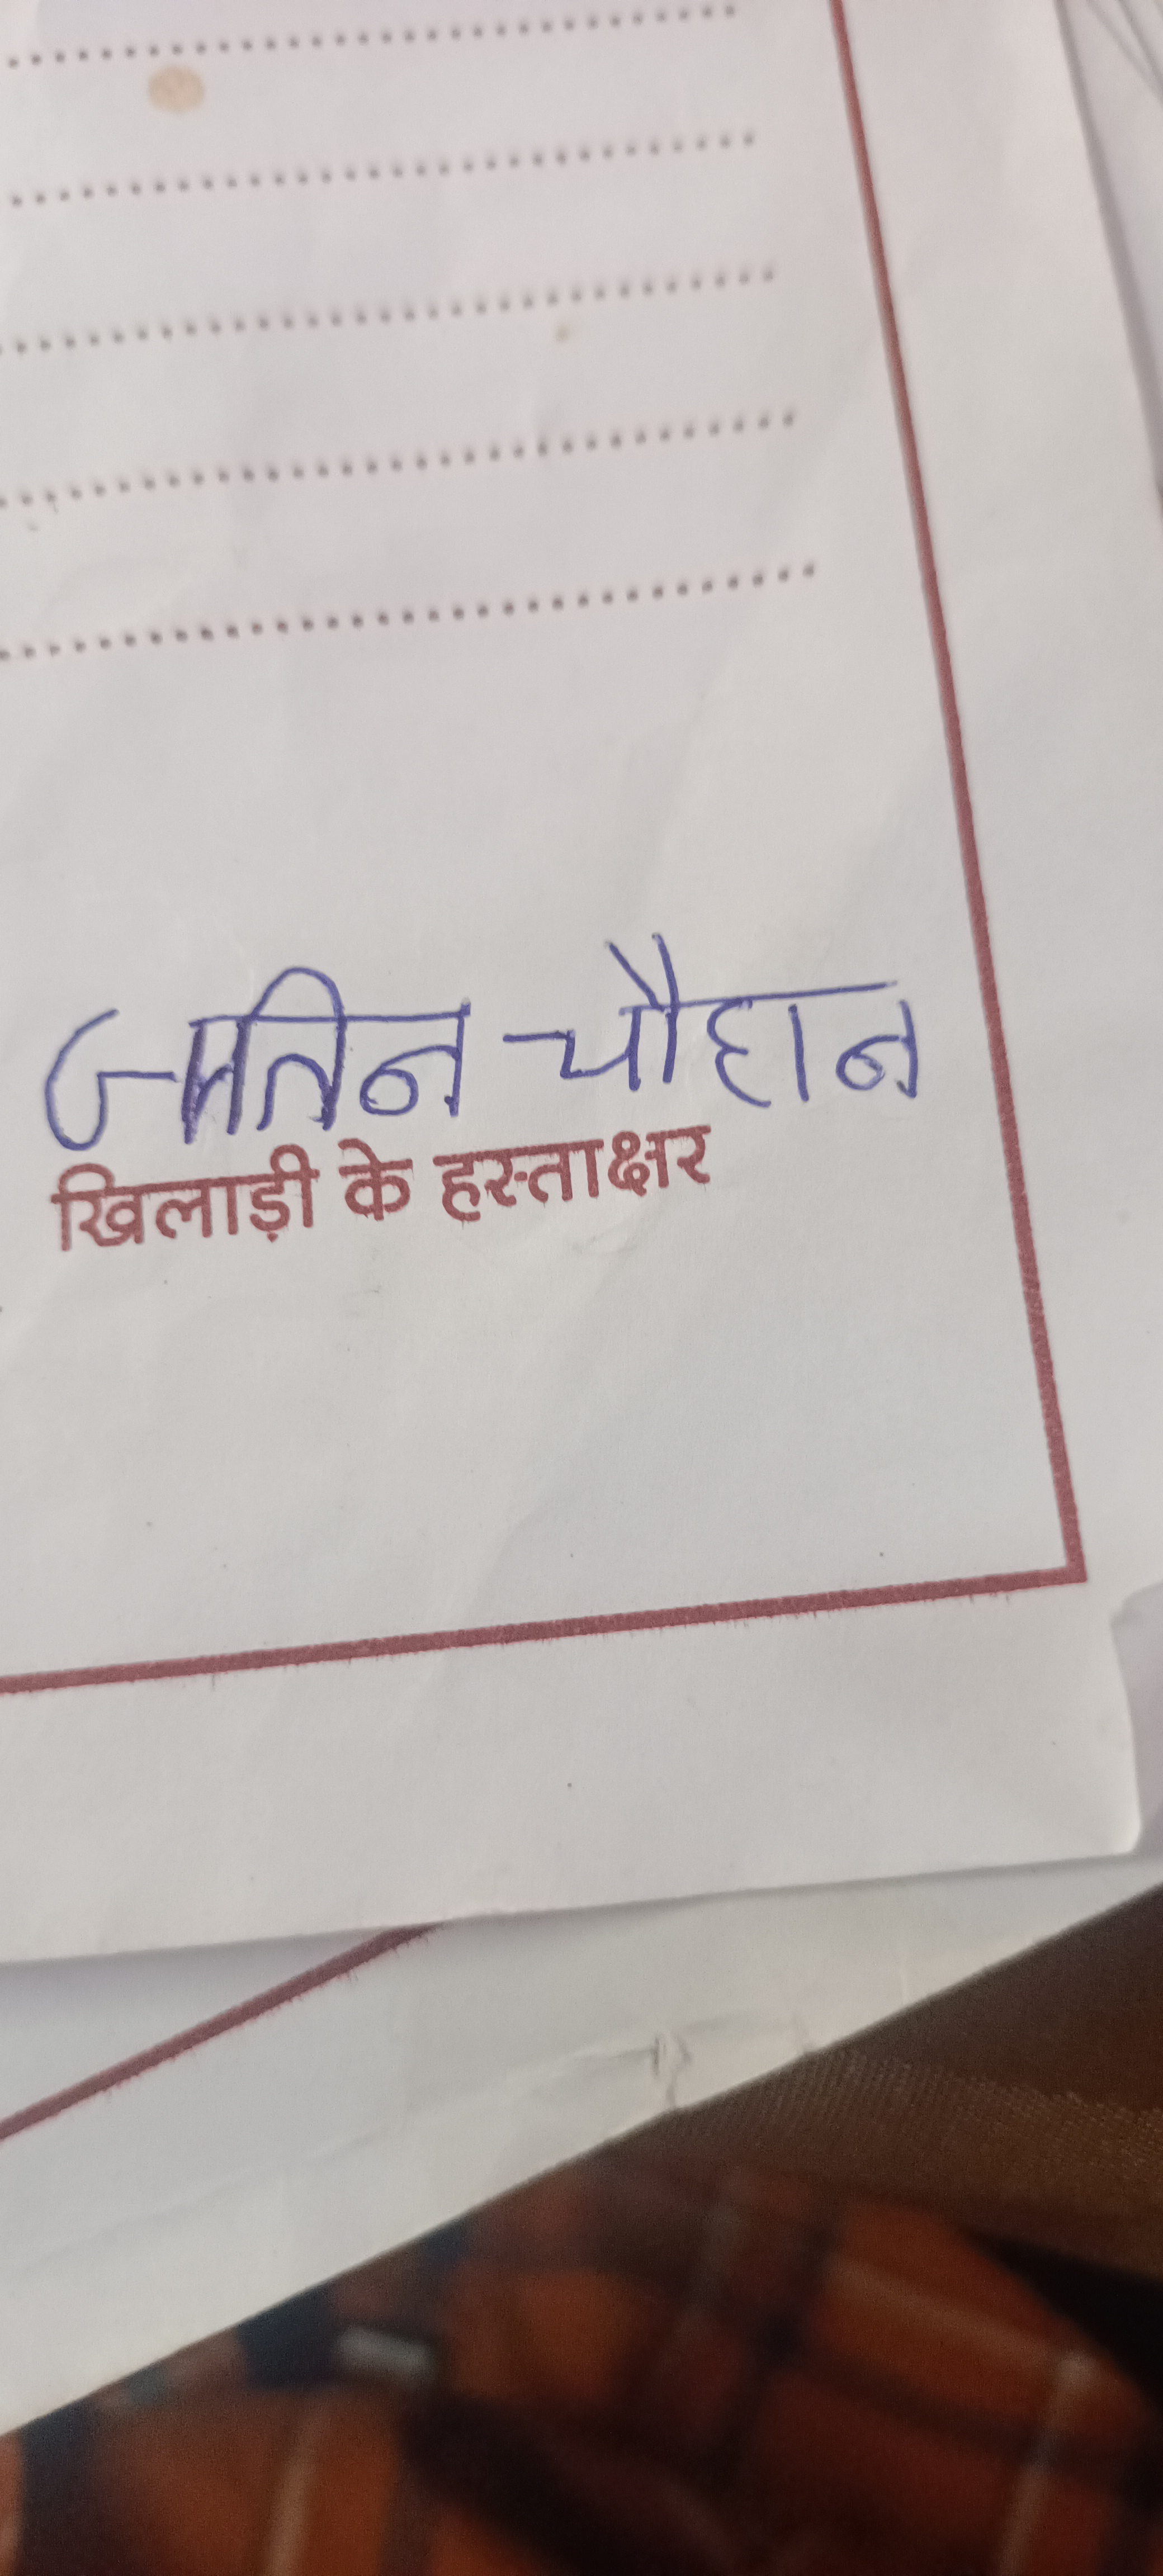 जतिन चौहान
खिलाड़ी के हस्ताक्षर